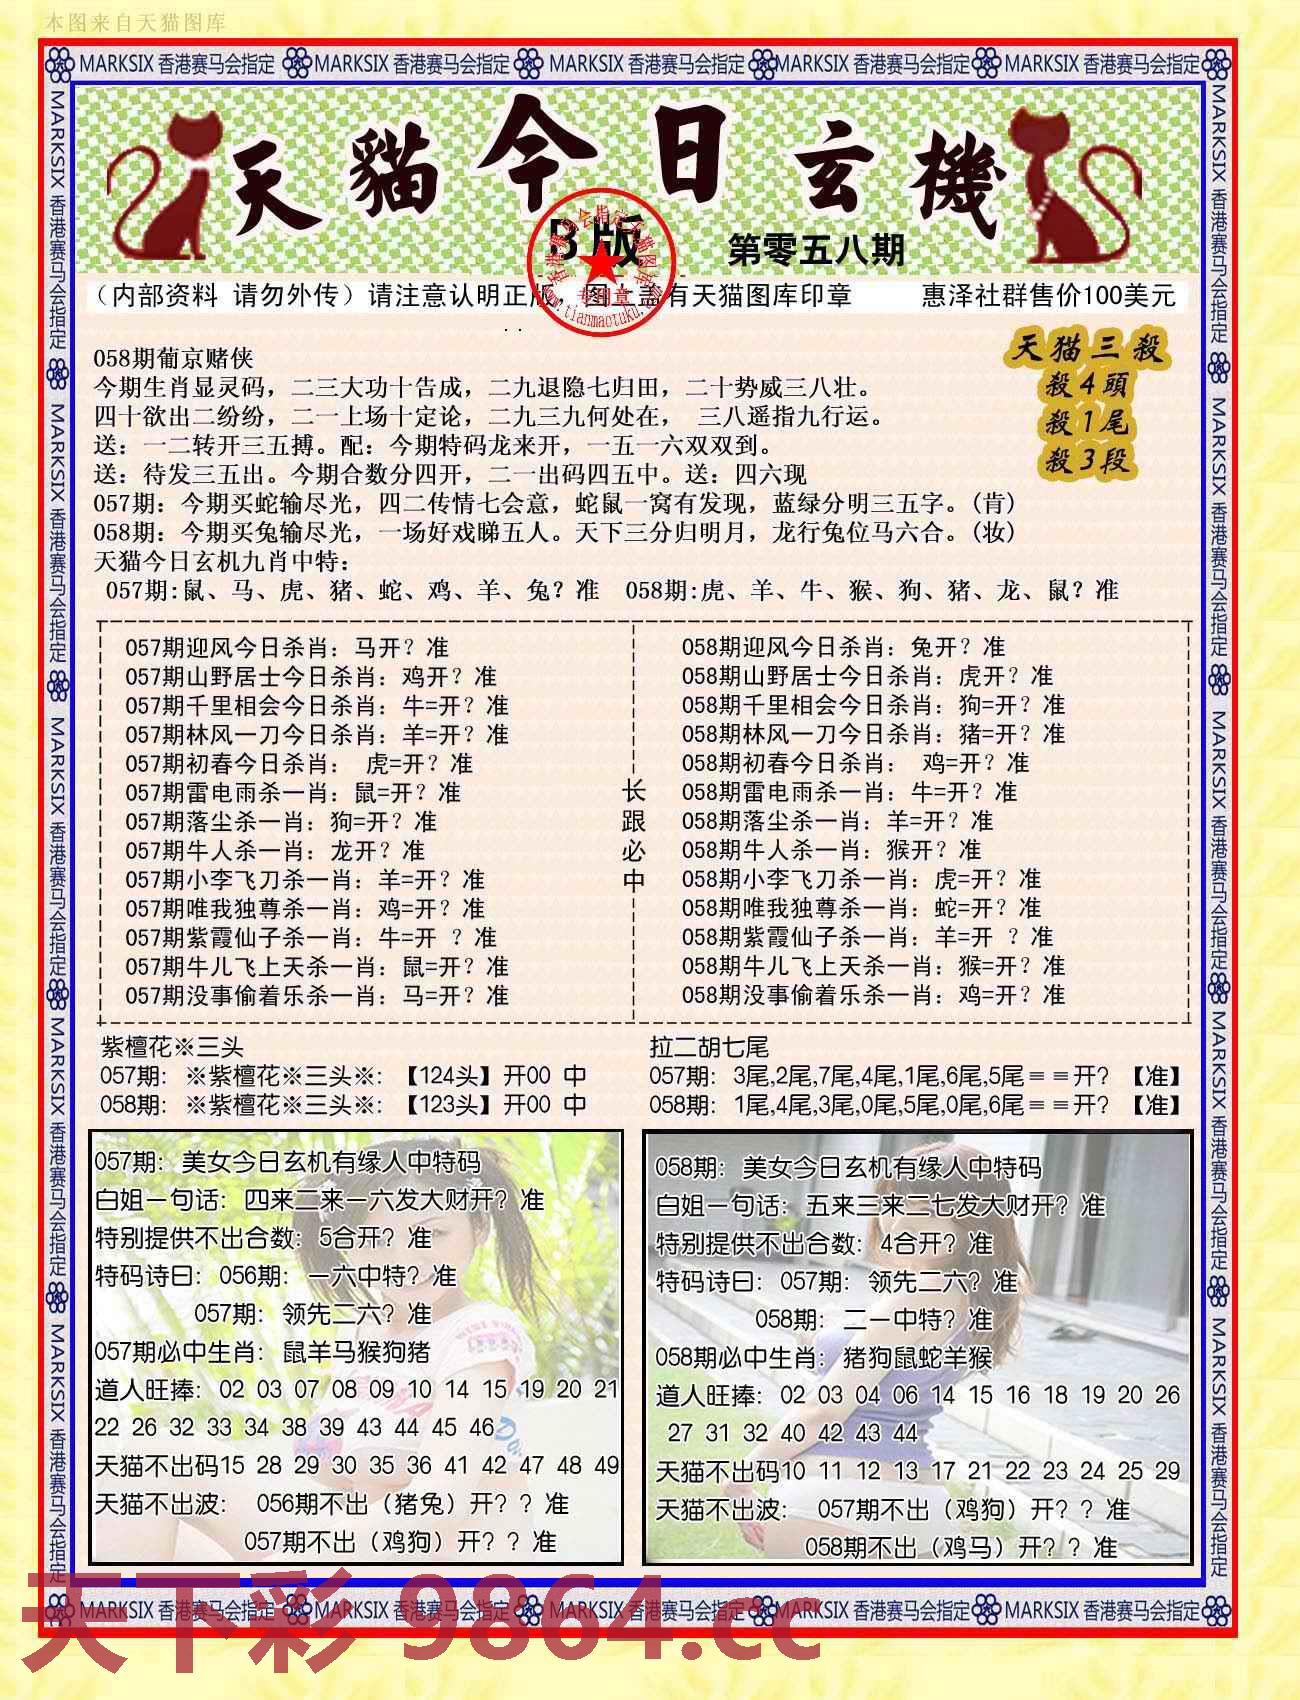 本图来自天猫图库
MARKSIX 香港赛马会指定 MARKSIX 香港赛马会指定 MARKSIX 香港赛马会指定 MARKSIX 香港赛马会指定 MARKSIX 香港赛马会指定
天貓今日玄機
B版
第零五八期
专用章
www.tianmaotuku.com
(内部资料 请勿外传) 请注意认明正版, 图上盖有天猫图库印章 惠泽社群售价100美元
天猫三殺
殺4頭
殺1尾
殺3段
058期葡京赌侠
今期生肖显灵码，二三大功十告成，二九退隐七归田，二十势威三八壮。
四十欲出二纷纷，二一上场十定论，二九三九何处在， 三八遥指九行运。
送：一二转开三五搏。配：今期特码龙来开，一五一六双双到。
送：待发三五出。今期合数分四开，二一出码四五中。送：四六现
057期：今期买蛇输尽光，四二传情七会意，蛇鼠一窝有发现，蓝绿分明三五字。(肯)
058期：今期买兔输尽光，一场好戏睇五人。天下三分归明月，龙行兔位马六合。(妆)
天猫今日玄机九肖中特：
057期:鼠、马、虎、猪、蛇、鸡、羊、兔？准 058期:虎、羊、牛、猴、狗、猪、龙、鼠？准
057期迎风今日杀肖：马开？准
057期山野居士今日杀肖：鸡开？准
057期千里相会今日杀肖：牛=开？准
057期林风一刀今日杀肖：羊=开？准
057期初春今日杀肖： 虎=开？准
057期雷电雨杀一肖：鼠=开？准
057期落尘杀一肖：狗=开？准
057期牛人杀一肖：龙开？准
057期小李飞刀杀一肖：羊=开？准
057期唯我独尊杀一肖：鸡=开？准
057期紫霞仙子杀一肖：牛=开 ？准
057期牛儿飞上天杀一肖：鼠=开？准
057期没事偷着乐杀一肖：马=开？准
长
跟
必
中
058期迎风今日杀肖：兔开？准
058期山野居士今日杀肖：虎开？准
058期千里相会今日杀肖：狗=开？准
058期林风一刀今日杀肖：猪=开？准
058期初春今日杀肖： 鸡=开？准
058期雷电雨杀一肖：牛=开？准
058期落尘杀一肖：羊=开？准
058期牛人杀一肖：猴开？准
058期小李飞刀杀一肖：虎=开？准
058期唯我独尊杀一肖：蛇=开？准
058期紫霞仙子杀一肖：羊=开 ？准
058期牛儿飞上天杀一肖：猴=开？准
058期没事偷着乐杀一肖：鸡=开？准
紫檀花※三头
057期： ※紫檀花※三头※: 【124头】开00 中
058期： ※紫檀花※三头※: 【123头】开00 中
拉二胡七尾
057期: 3尾,2尾,7尾,4尾,1尾,6尾,5尾＝＝开? 【准】
058期: 1尾,4尾,3尾,0尾,5尾,0尾,6尾＝＝开? 【准】
057期：美女今日玄机有缘人中特码
白姐一句话：四来二来一六发大财开？准
特别提供不出合数：5合开？准
特码诗曰：056期：一六中特？准
057期：领先二六？准
057期必中生肖：鼠羊马猴狗猪
道人旺捧：02 03 07 08 09 10 14 15 19 20 21
22 26 32 33 34 38 39 43 44 45 46
天猫不出码15 28 29 30 35 36 41 42 47 48 49
天猫不出波： 056期不出（猪兔）开？？准
057期不出（鸡狗）开？？准
058期：美女今日玄机有缘人中特码
白姐一句话：五来三来二七发大财开？准
特别提供不出合数：4合开？准
特码诗曰：057期：领先二六？准
058期：二一中特？准
058期必中生肖：猪狗鼠蛇羊猴
道人旺捧：02 03 04 06 14 15 16 18 19 20 26
27 31 32 40 42 43 44
天猫不出码10 11 12 13 17 21 22 23 24 25 29
天猫不出波： 057期不出（鸡狗）开？？准
058期不出（鸡马）开？？准
MARKSIX 香港赛马会指定 MARKSIX 香港赛马会指定 MARKSIX 香港赛马会指定 MARKSIX 香港赛马会指定 MARKSIX 香港赛马会指定
天下彩 9864.cc